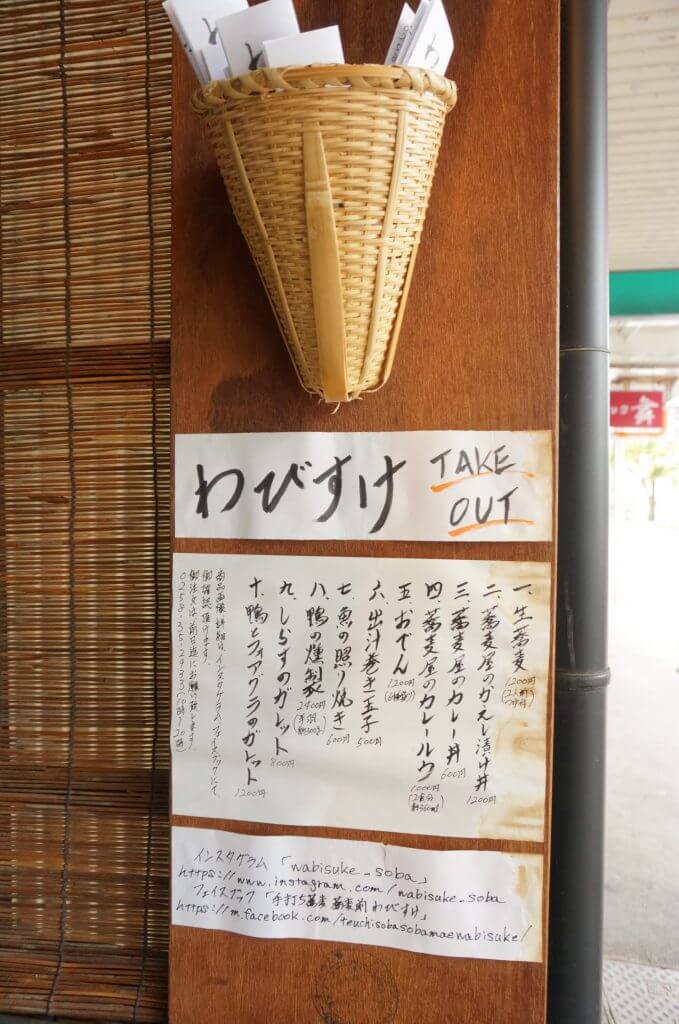 わびすけ
TAKE
OUT
一、生蕎麦 1200円
(2人前
つゆ付)
二、蕎麦屋のかえし漬け丼 1200円
三、蕎麦屋のカレー丼 600円
四、蕎麦屋のカレールウ 1000円
(2食分
約360ml)
五、おでん 1200円
六、出汁巻き玉子 500円
七、魚の照り焼き 600円
八、鴨の燻製 2400円
九、しらすのガレット 800円
十、鴨とフォアグラのガレット 1200円
商品画像、詳細は、インスタグラム、フェイスブックにて、
御確認頂けます。
御注文は前日迄にお願い致します。
0258-35-2933(10時~20時)
インスタグラム 「wabisuke_soba」
https://www.instagram.com/wabisuke_soba
フェイスブック 「手打ち蕎麦 蕎麦前 わびすけ」
https://m.facebook.com/teuchisobasobamaewabisuke/
舞